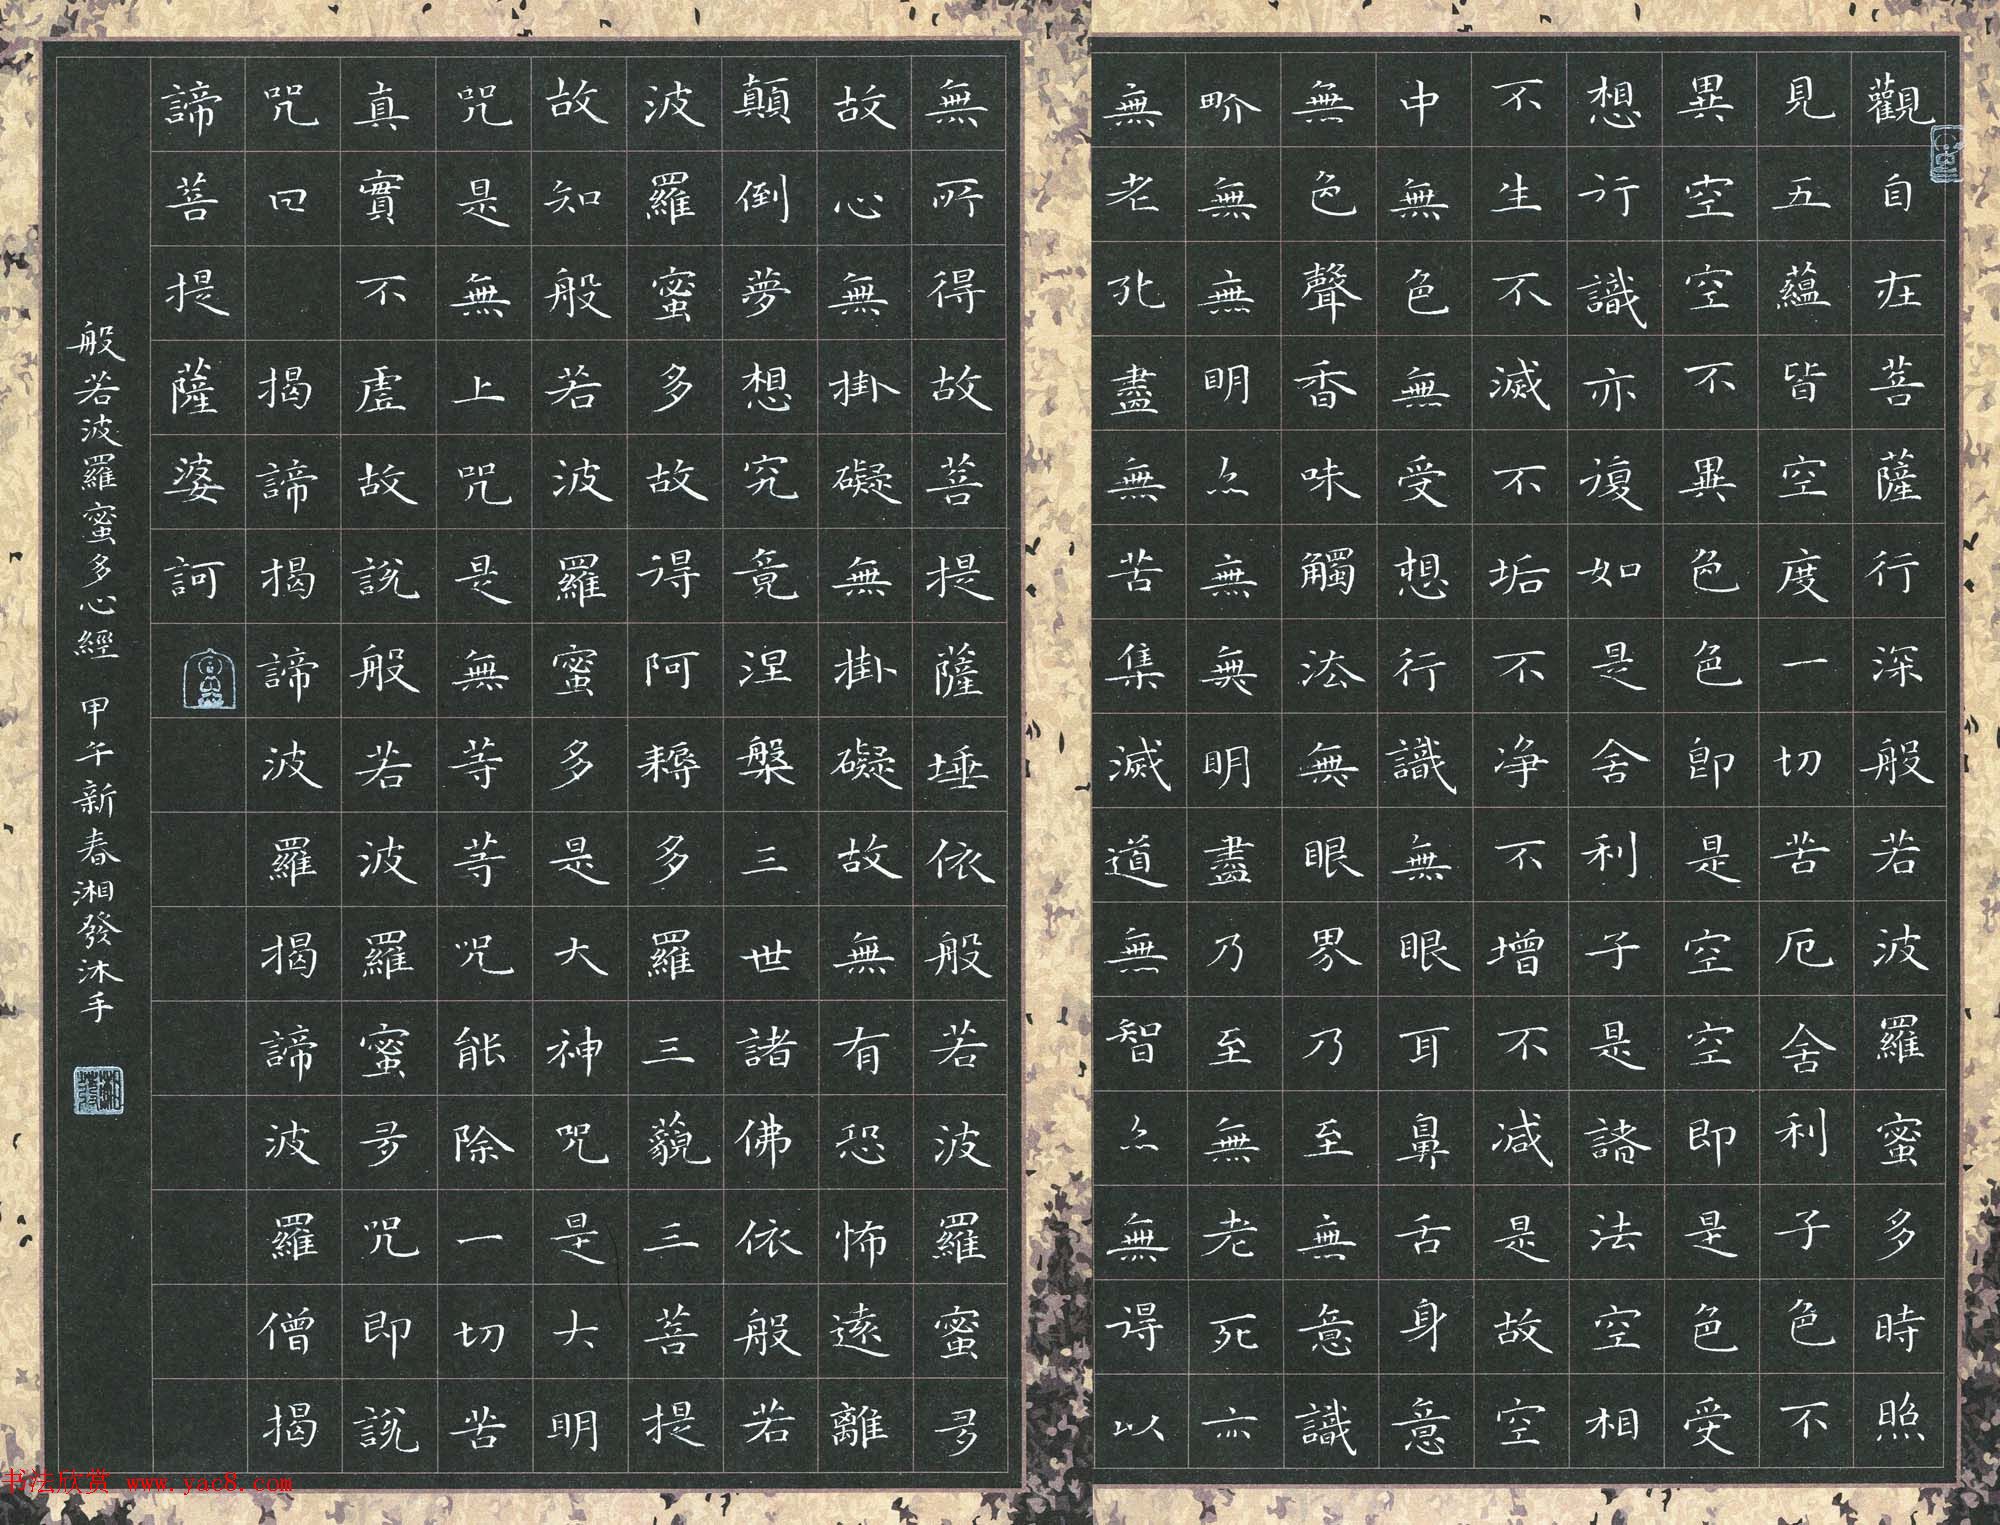 觀自在菩薩行深般若波羅蜜多時照
見五蘊皆空度一切苦厄舍利子色不
異空空不異色色即是空空即是色受
想行識亦復如是舍利子是諸法空相
不生不滅不垢不净不增不減是故空
中無色無受想行識無眼耳鼻舌身意
無色聲香味觸法無眼界乃至無意識
界無無明亦無無明盡乃至無老死亦
無老死盡無苦集滅道無智亦無得以
無所得故菩提薩埵依般若波羅蜜多
故心無掛礙無掛礙故無有恐怖遠離
顛倒夢想究竟涅槃三世諸佛依般若
波羅蜜多故得阿耨多羅三藐三菩提
故知般若波羅蜜多是大神咒是大明
咒是無上咒是無等等咒能除一切苦
真實不虛故說般若波羅蜜多咒即說
咒曰 揭諦揭諦波羅揭諦波羅僧揭
諦菩提薩婆訶
般若波羅蜜多心經 甲午新春湘發沐手
书法欣赏 www.yac8.com